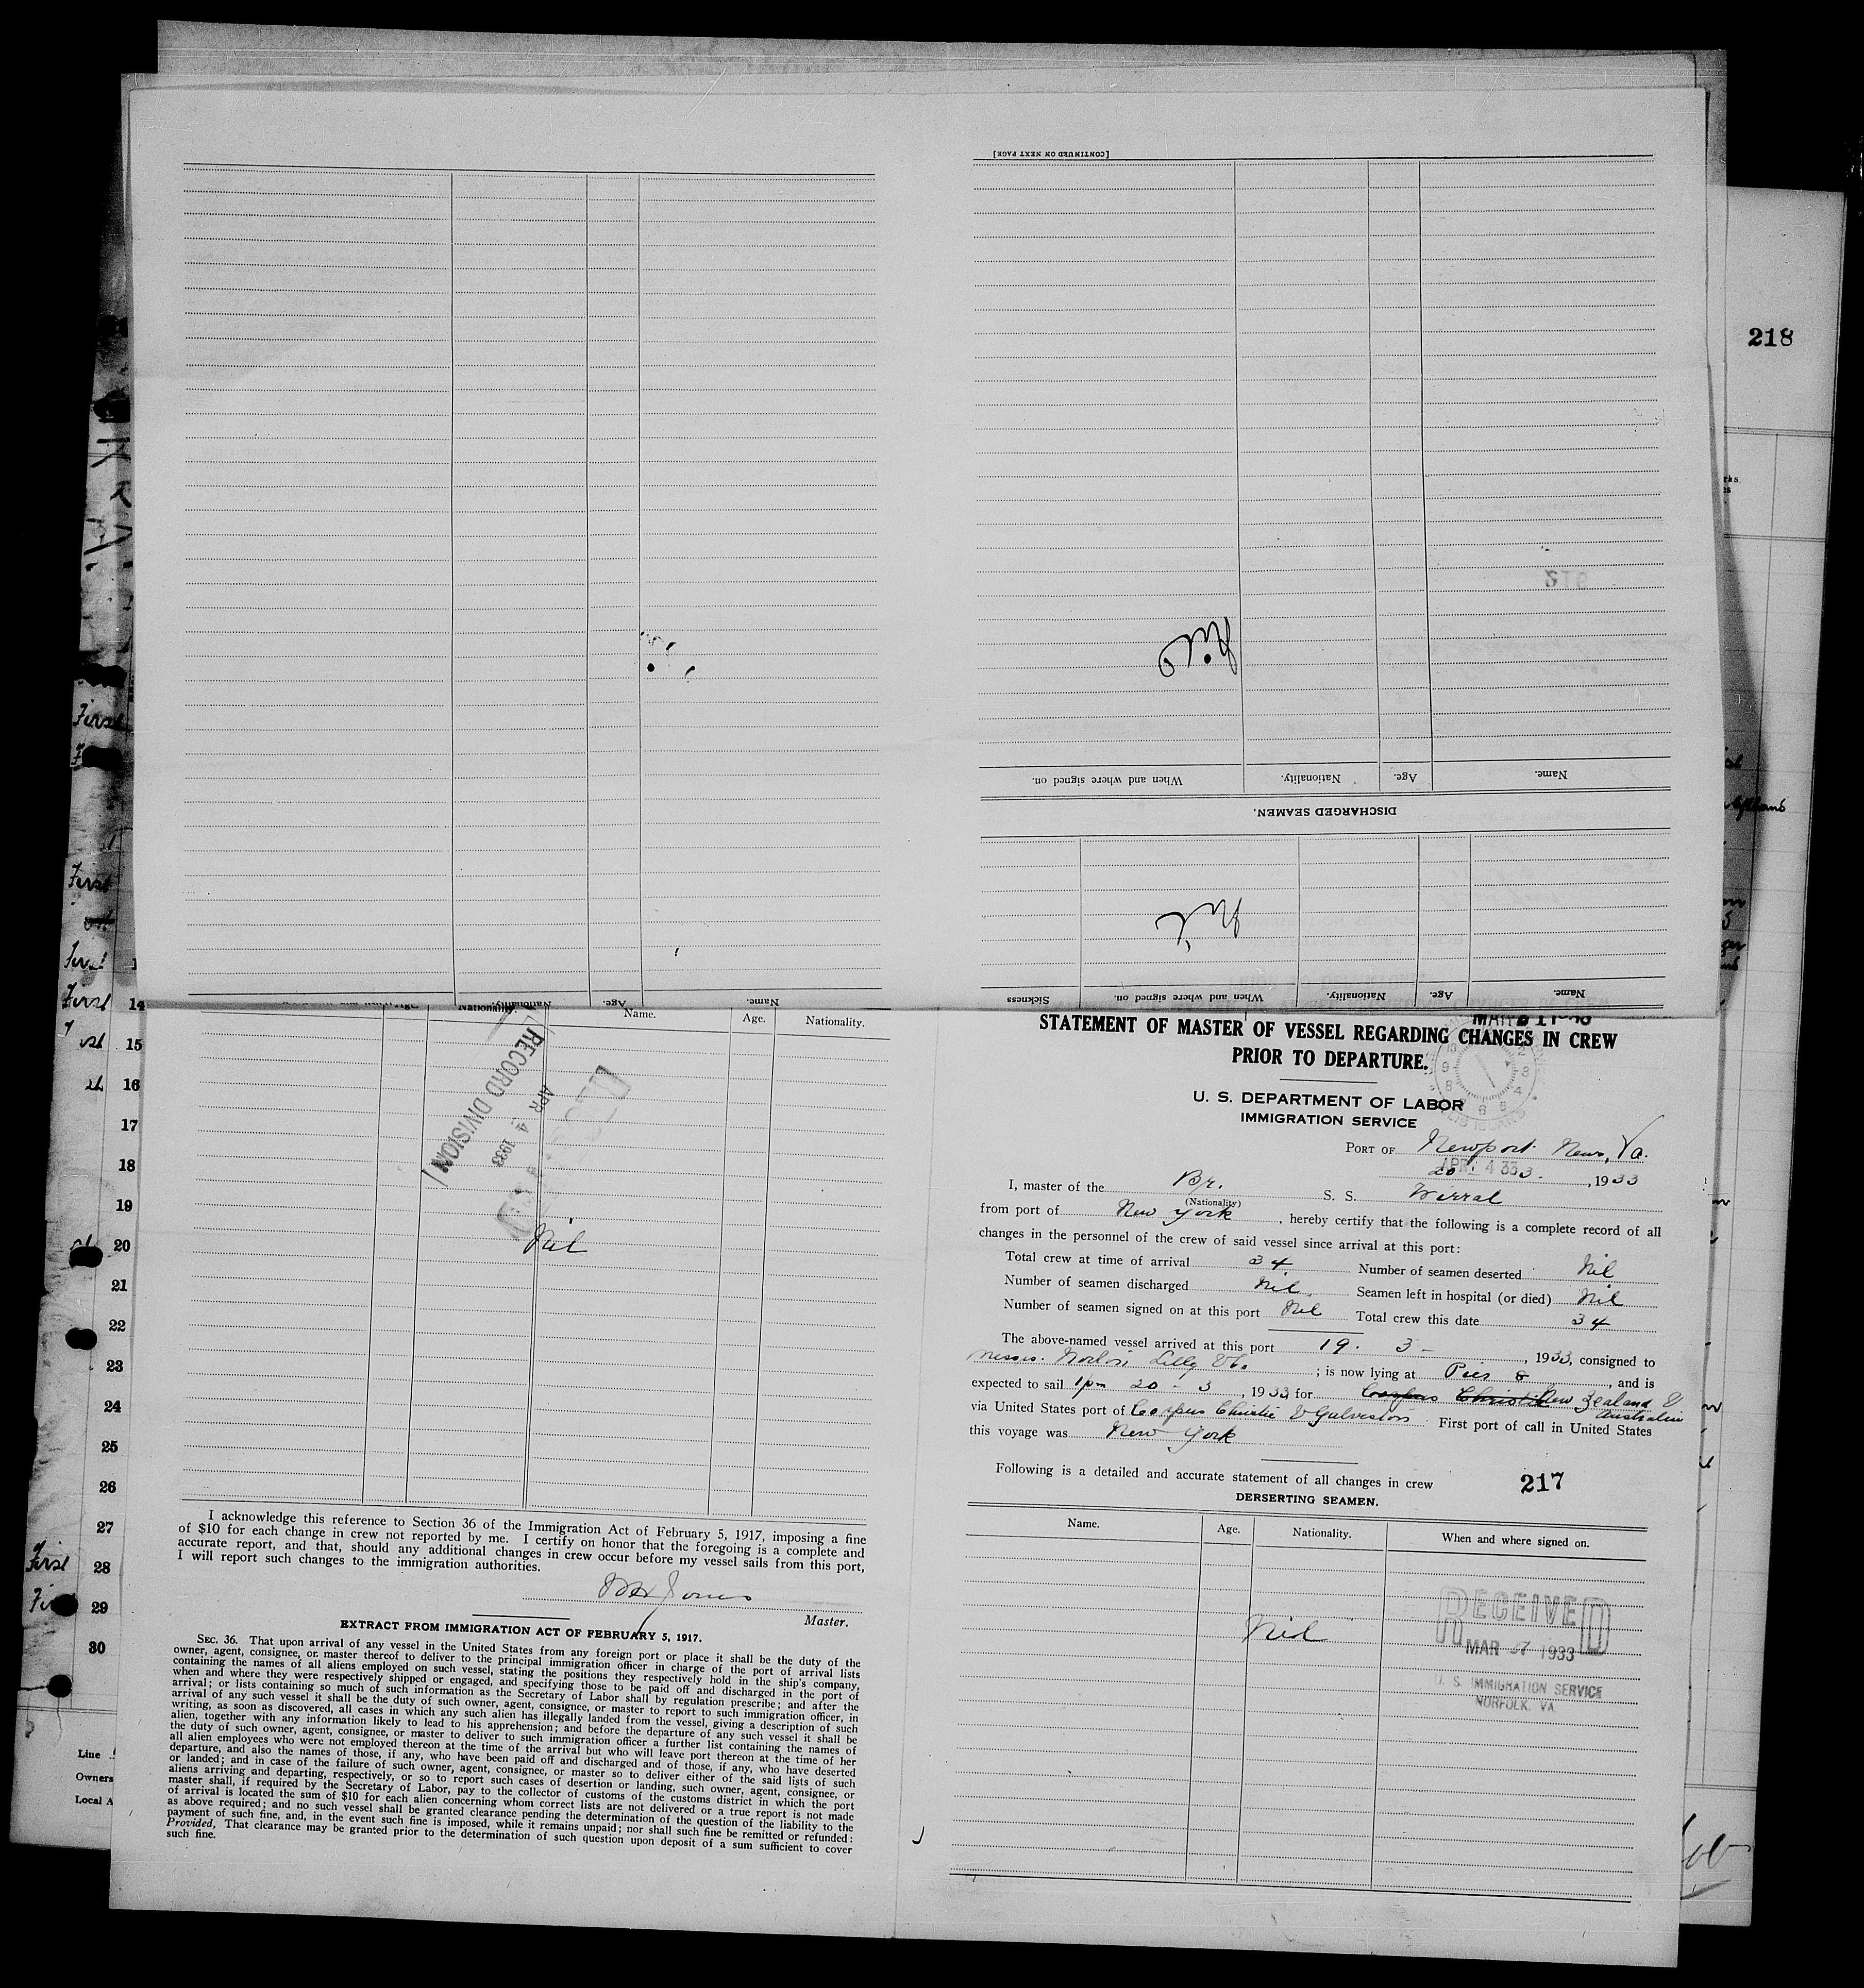 [CONTINUED ON NEXT PAGE]
218
Nil
When and where signed on. Nationality. Age. Name.
DISCHARGED SEAMEN.
Nil
Sickness When and where signed on. Nationality. Age. Name.
Nationality. Age. Name.
Name. Age. Nationality.
First
First
First
First
14
15
16
17
18
19
20
21
22
23
24
25
26
27
28
29
30
First
Line
Owners
Local A
RECORD DIVISION
APR 4 1933
Nil
I acknowledge this reference to Section 36 of the Immigration Act of February 5, 1917, imposing a fine
of $10 for each change in crew not reported by me. I certify on honor that the foregoing is a complete and
accurate report, and that, should any additional changes in crew occur before my vessel sails from this port,
I will report such changes to the immigration authorities.
Jones
Master.
EXTRACT FROM IMMIGRATION ACT OF FEBRUARY 5, 1917.
SEC. 36. That upon arrival of any vessel in the United States from any foreign port or place it shall be the duty of the
owner, agent, consignee, or master thereof to deliver to the principal immigration officer in charge of the port of arrival lists
containing the names of all aliens employed on such vessel, stating the positions they respectively hold in the ship's company,
when and where they were respectively shipped or engaged, and specifying those to be paid off and discharged in the port of
arrival; or lists containing so much of such information as the Secretary of Labor shall by regulation prescribe; and after the
arrival of any such vessel it shall be the duty of such owner, agent, consignee, or master to report to such immigration officer, in
writing, as soon as discovered, all cases in which any such alien has illegally landed from the vessel, giving a description of such
alien, together with any information likely to lead to his apprehension; and before the departure of any such vessel it shall be
the duty of such owner, agent, consignee, or master to deliver to such immigration officer a further list containing the names of
all alien employees who were not employed thereon at the time of the arrival but who will leave port thereon at the time of her
departure, and also the names of those, if any, who have been paid off and discharged and of those, if any, who have deserted
or landed; and in case of the failure of such owner, agent, consignee, or master so to deliver either of the said lists of such
aliens arriving and departing, respectively, or so to report such cases of desertion or landing, such owner, agent, consignee, or
master shall, if required by the Secretary of Labor, pay to the collector of customs of the customs district in which the port
of arrival is located the sum of $10 for each alien concerning whom correct lists are not delivered or a true report is not made
as above required; and no such vessel shall be granted clearance pending the determination of the question of the liability to the
payment of such fine, and, in the event such fine is imposed, while it remains unpaid; nor shall such fine be remitted or refunded:
Provided, That clearance may be granted prior to the determination of such question upon deposit of a sum sufficient to cover
such fine.
STATEMENT OF MASTER OF VESSEL REGARDING CHANGES IN CREW
PRIOR TO DEPARTURE.
U. S. DEPARTMENT OF LABOR
IMMIGRATION SERVICE
PORT OF Newport News, Va.
APR 4 33
20 3 - , 1933
I, master of the Br. S. S. Wirral
(Nationality)
from port of New York , hereby certify that the following is a complete record of all
changes in the personnel of the crew of said vessel since arrival at this port:
Total crew at time of arrival 34 Number of seamen deserted Nil
Number of seamen discharged Nil. Seamen left in hospital (or died) Nil
Number of seamen signed on at this port Nil Total crew this date 34
The above-named vessel arrived at this port 19. 3 - , 1933, consigned to
Messrs. Norton Lilly & Co. ; is now lying at Pier 8 , and is
expected to sail 1pm 20 - 3 , 1933 for Corpus Christi New Zealand &
Australia
via United States port of Corpus Christie & Galveston First port of call in United States
this voyage was New York
Following is a detailed and accurate statement of all changes in crew
217
DERSERTING SEAMEN.
Name. Age. Nationality. When and where signed on.
Nil
RECEIVED
MAR 1933
U. S. IMMIGRATION SERVICE
NORFOLK, VA.